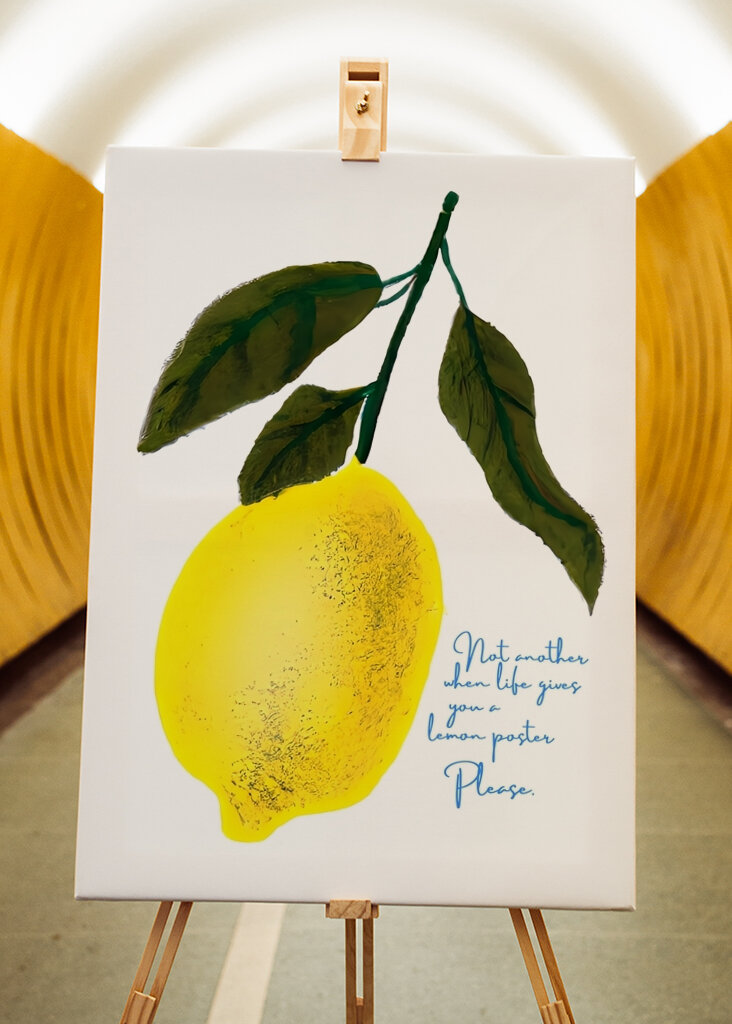 Not another
when life gives
you a
lemon poster
Please.